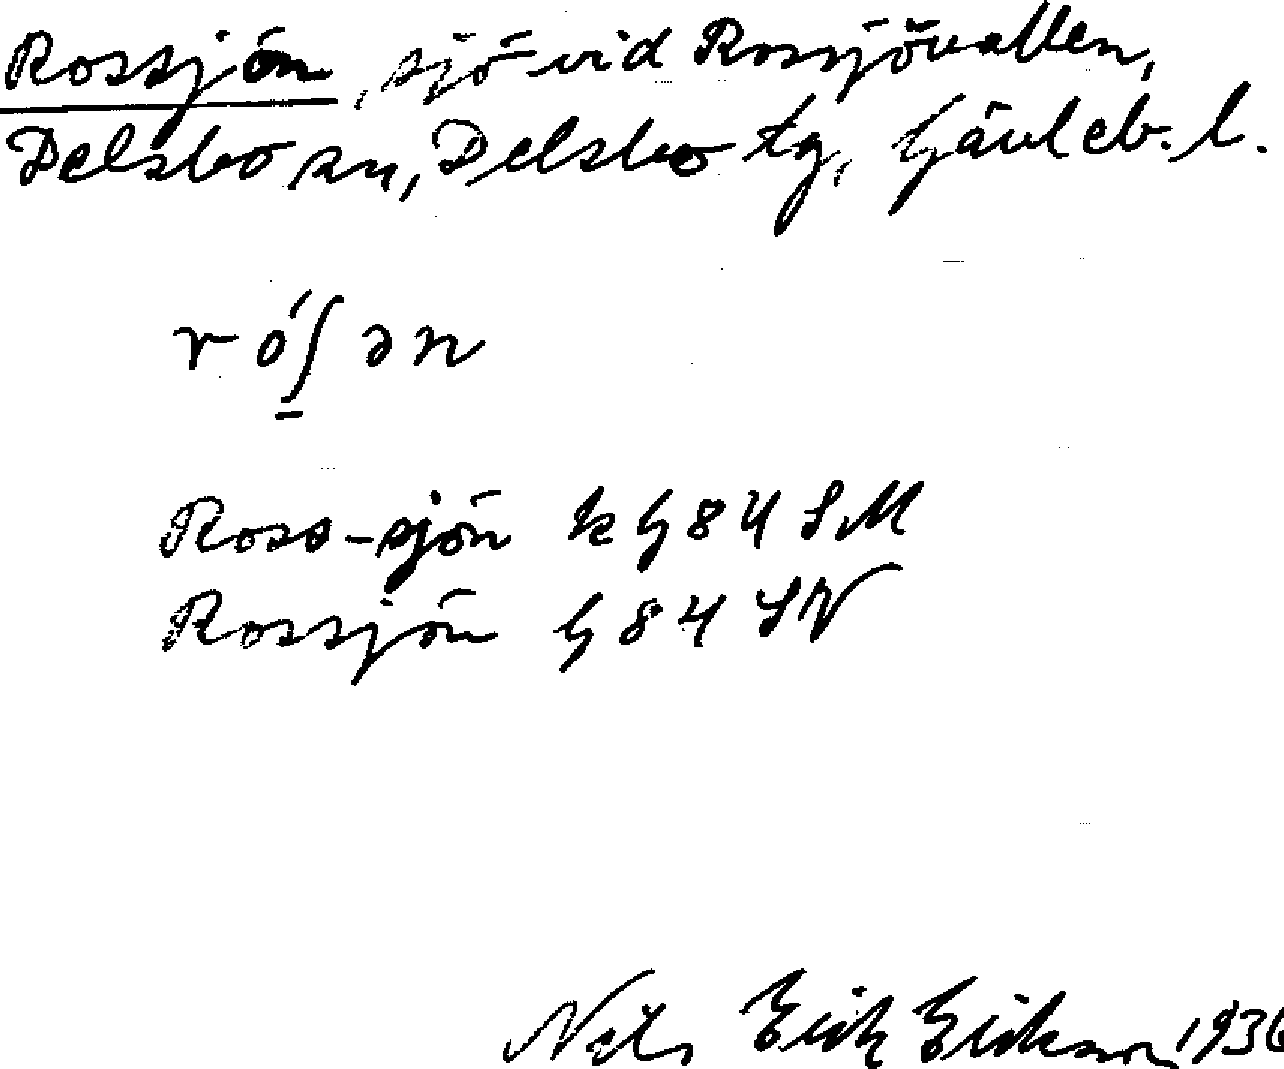 Rossjön, sjö vid Rossjövallen,
Delsbo sn, Delsbo tg, Gävleb. l.
r ó ʃ ə n
Ross-sjön k G 84 SM
Rossjön G 84 SV
Nils Erik Erikson 1936